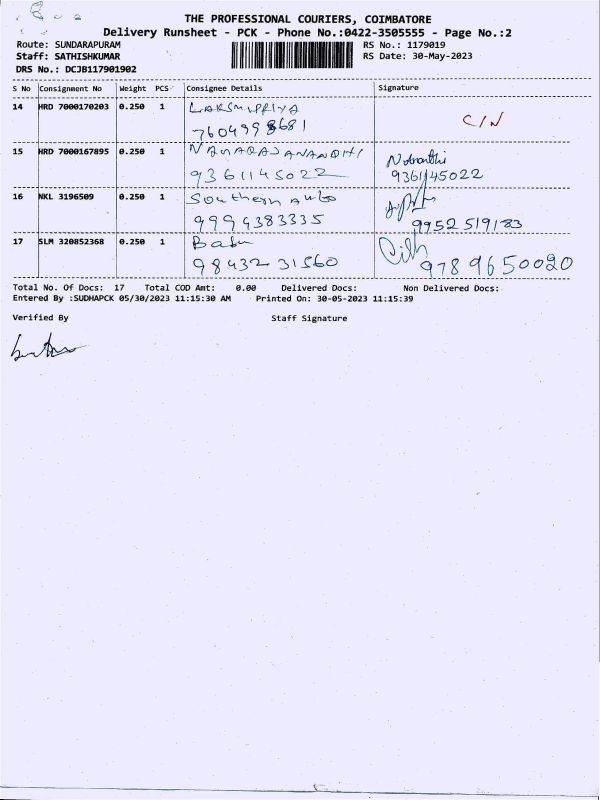 THE PROFESSIONAL COURIERS, COIMBATORE
Delivery Runsheet - PCK - Phone No.:0422-3505555 - Page No.:2
Route: SUNDARAPURAM RS No.: 1179019
Staff: SATHISHKUMAR RS Date: 30-May-2023
DRS No.: DCJB117901902
S No Consignment No Weight PCS Consignee Details Signature
14 HRD 7000170203 0.250 1 LAKSMIPRIYA
7604998681 C/N
15 HRD 7000167895 0.250 1
9361145022 9361145022
16 NKL 3196509 0.250 1 Southern Auto
9994383335 9952519183
17 SLM 320852368 0.250 1 Babu
98432 31560 9789650020
Total No. Of Docs: 17 Total COD Amt: 0.00 Delivered Docs: Non Delivered Docs:
Entered By :SUDHAPCK 05/30/2023 11:15:30 AM Printed On: 30-05-2023 11:15:39
Verified By Staff Signature